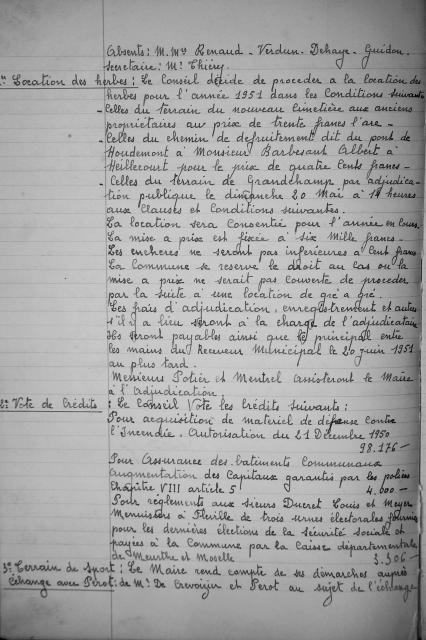 Absents: M.M.rs Renaud - Verdun - Dehaye - Guidon.
Secretaire: Mr Thiéry
1° Location des herbes: Le Conseil décide de proceder a la location des
herbes pour l'année 1951 dans les Conditions suivantes
- Celles du terrain du nouveau Cimetière aux anciens
propriétaires au prix de trente francs l'are -
- Celles du chemin de defruitement dit du pont de
Houdemont à Monsieur Barbesant Albert à
Heillecourt pour le prix de quatre Cents francs -
- Celles du terrain de Grandchamp par adjudica-
tion publique le dimanche 20 Mai à 14 heures
aux Clauses et Conditions suivantes.
La location sera Consentie pour l'année en Cours.
La mise a prix est fixée à six Mille francs -
Les encheres ne seront pas inferieures a Cent francs
La Commune se reserve le droit au cas ou la
mise a prix ne serait pas Couverte de proceder
par la suite à une location de gré a gré.
Les frais d'adjudication, enregistrement et autres
s'il y a lieu seront à la charge de l'adjudicataire
Ils seront payables ainsi que le principal entre
les mains du Receveur Municipal le 20 juin 1951
au plus tard.
Messieurs Potier et Mentrel assisteront le Maire
à l'adjudication.
2° Vote de Crédits: Le Conseil Vote les Crédits suivants:
Pour acquisition de materiel de défense Contre
l'Incendie. Autorisation du 21 Décembre 1950
98.176 -
Pour Assurance des batiments Communaux
Augmentation des Capitaux garantis par les polices
Chapitre VIII article 5 4.000 -
Pour réglements aux sieurs Ducret Louis et Meyer
Menuisiers à Fléville de trois urnes électorales fournies
pour les dernières élections de la sécurité sociale et
payées à la Commune par la Caisse départementale
de Meurthe et Moselle 3.306 -
3° Terrain de sport: Le Maire rend compte de ses démarches auprès
échange avec Perot: de Mr De Crevoisier et Perot au sujet de l'échange